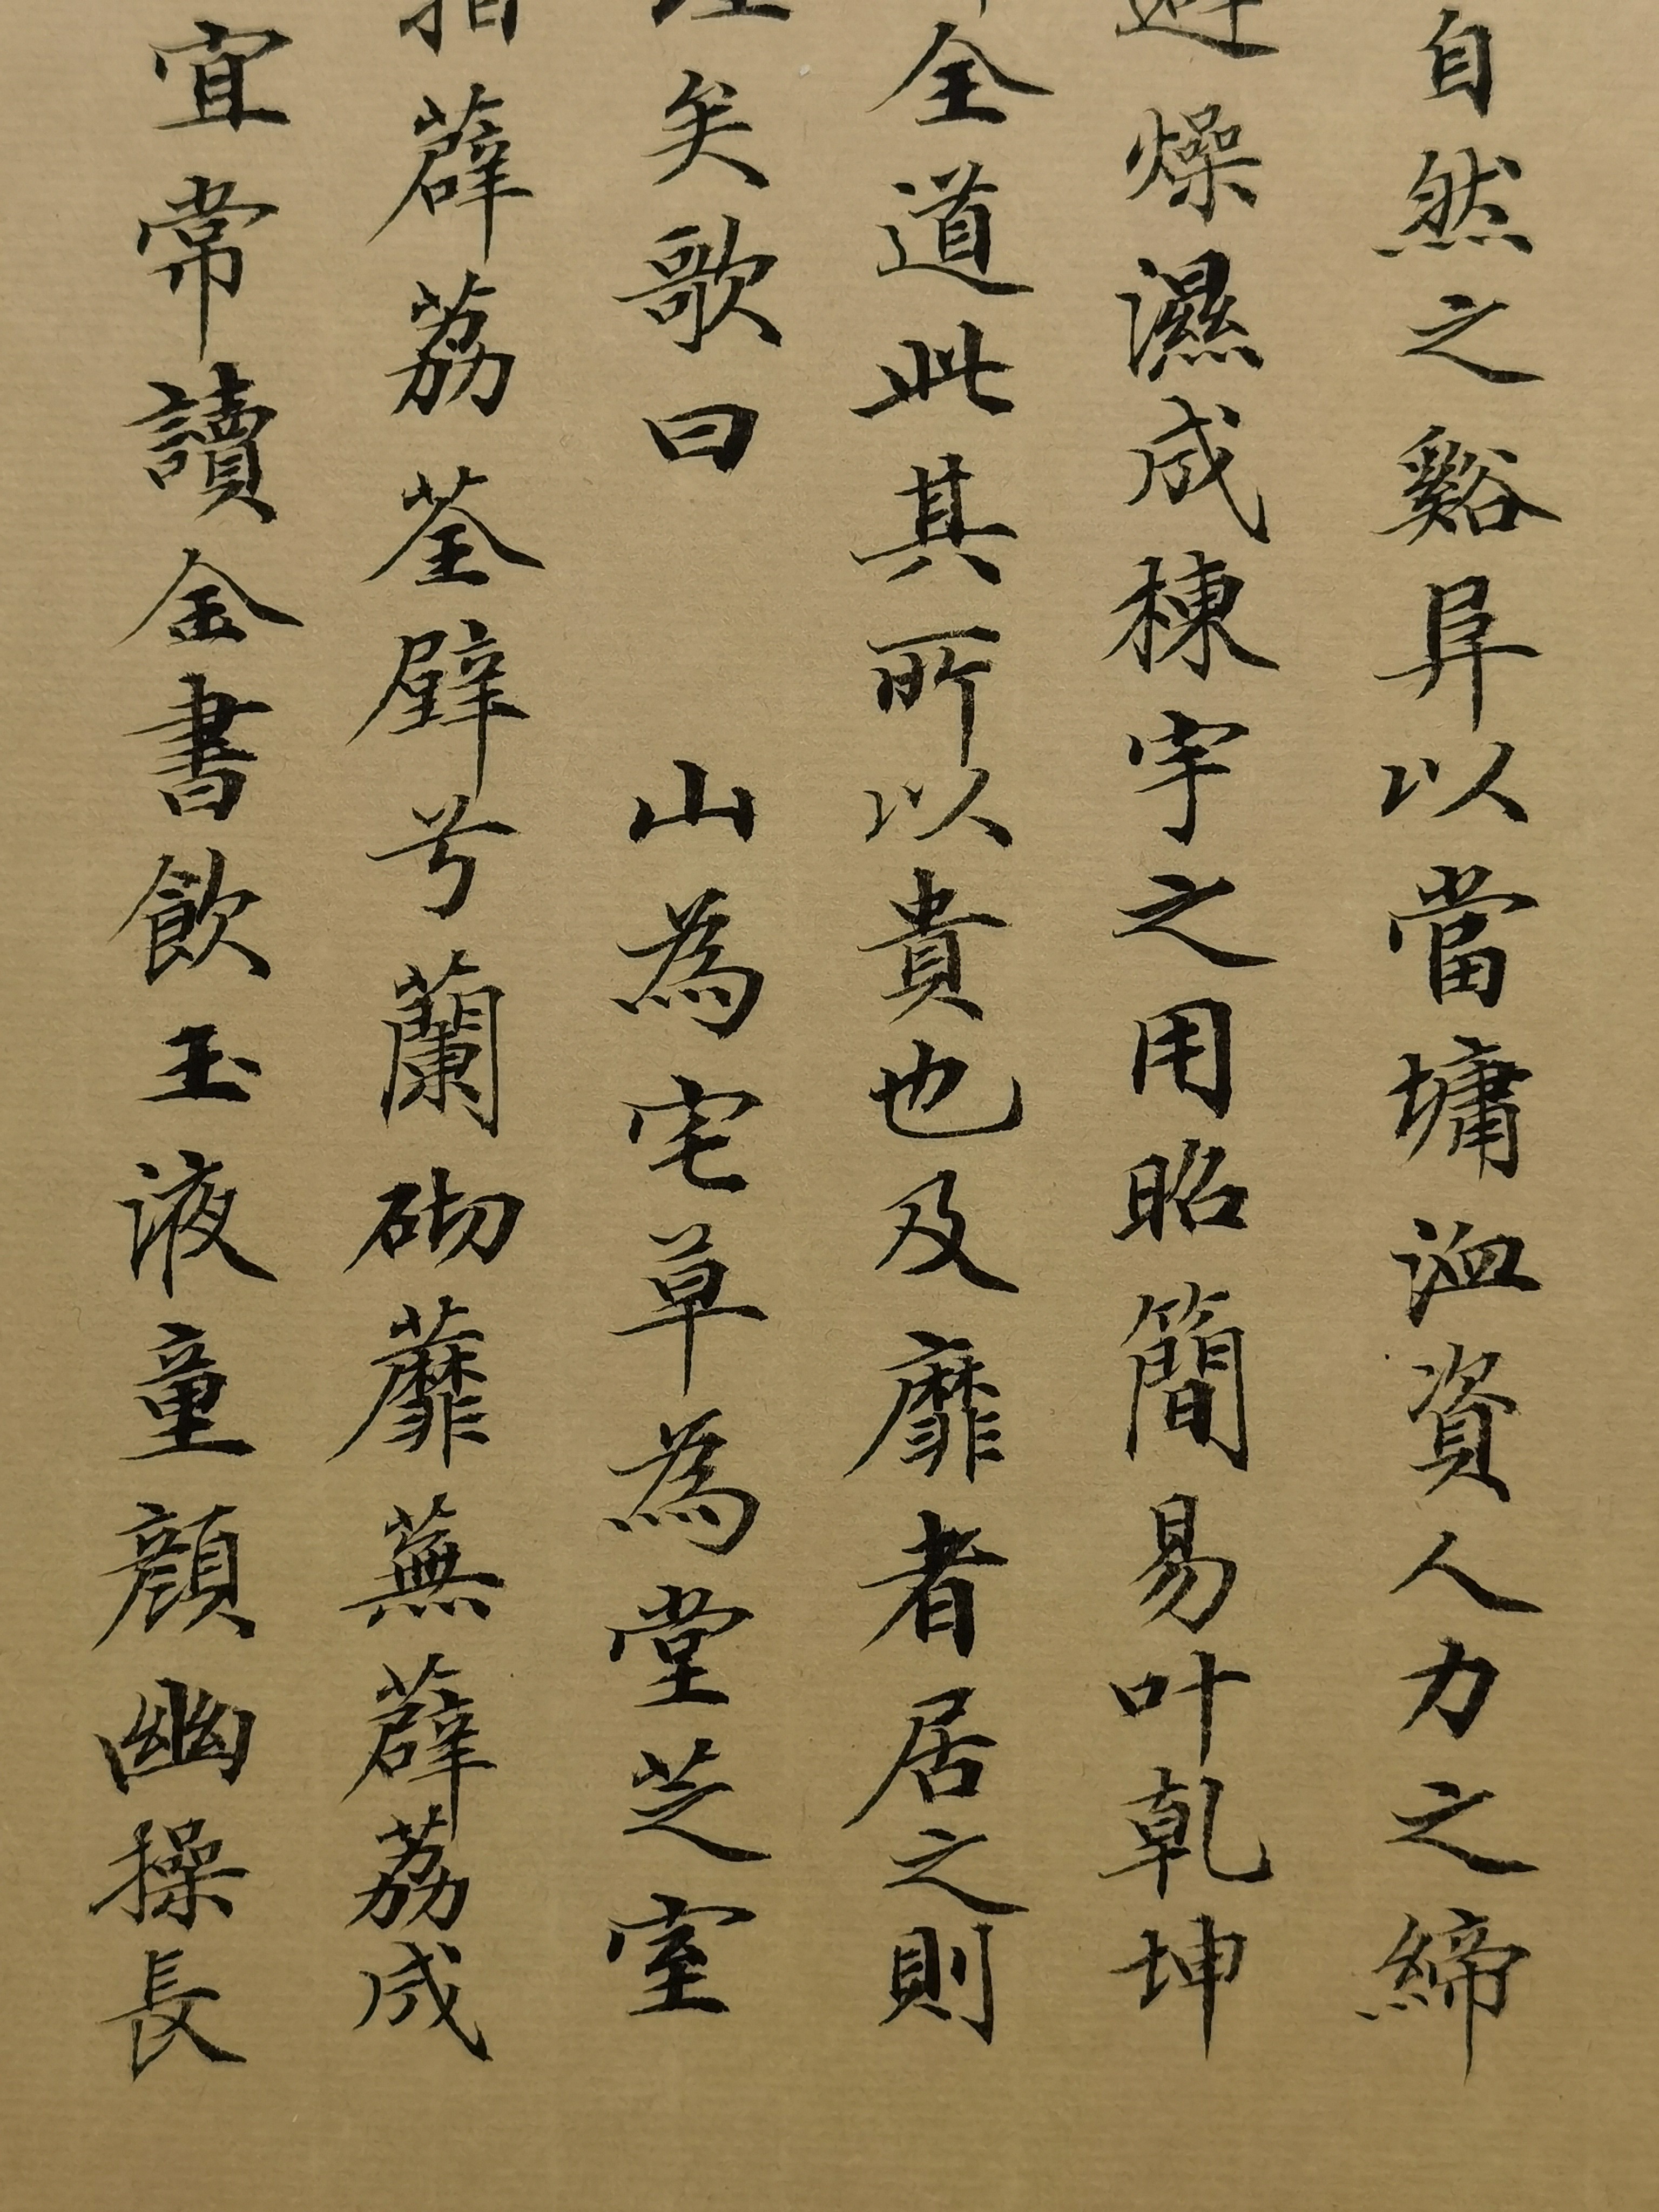 自然之谿阜以當墉洫資人力之締
避燥濕成棟宇之用昭簡易叶乾坤
全道此其所以貴也及靡者居之則
矣歌曰　山為宅草為堂芝室
薜荔荃壁兮蘭砌蘼蕪薜荔成
宜常讀金書飲玉液童顏幽操長